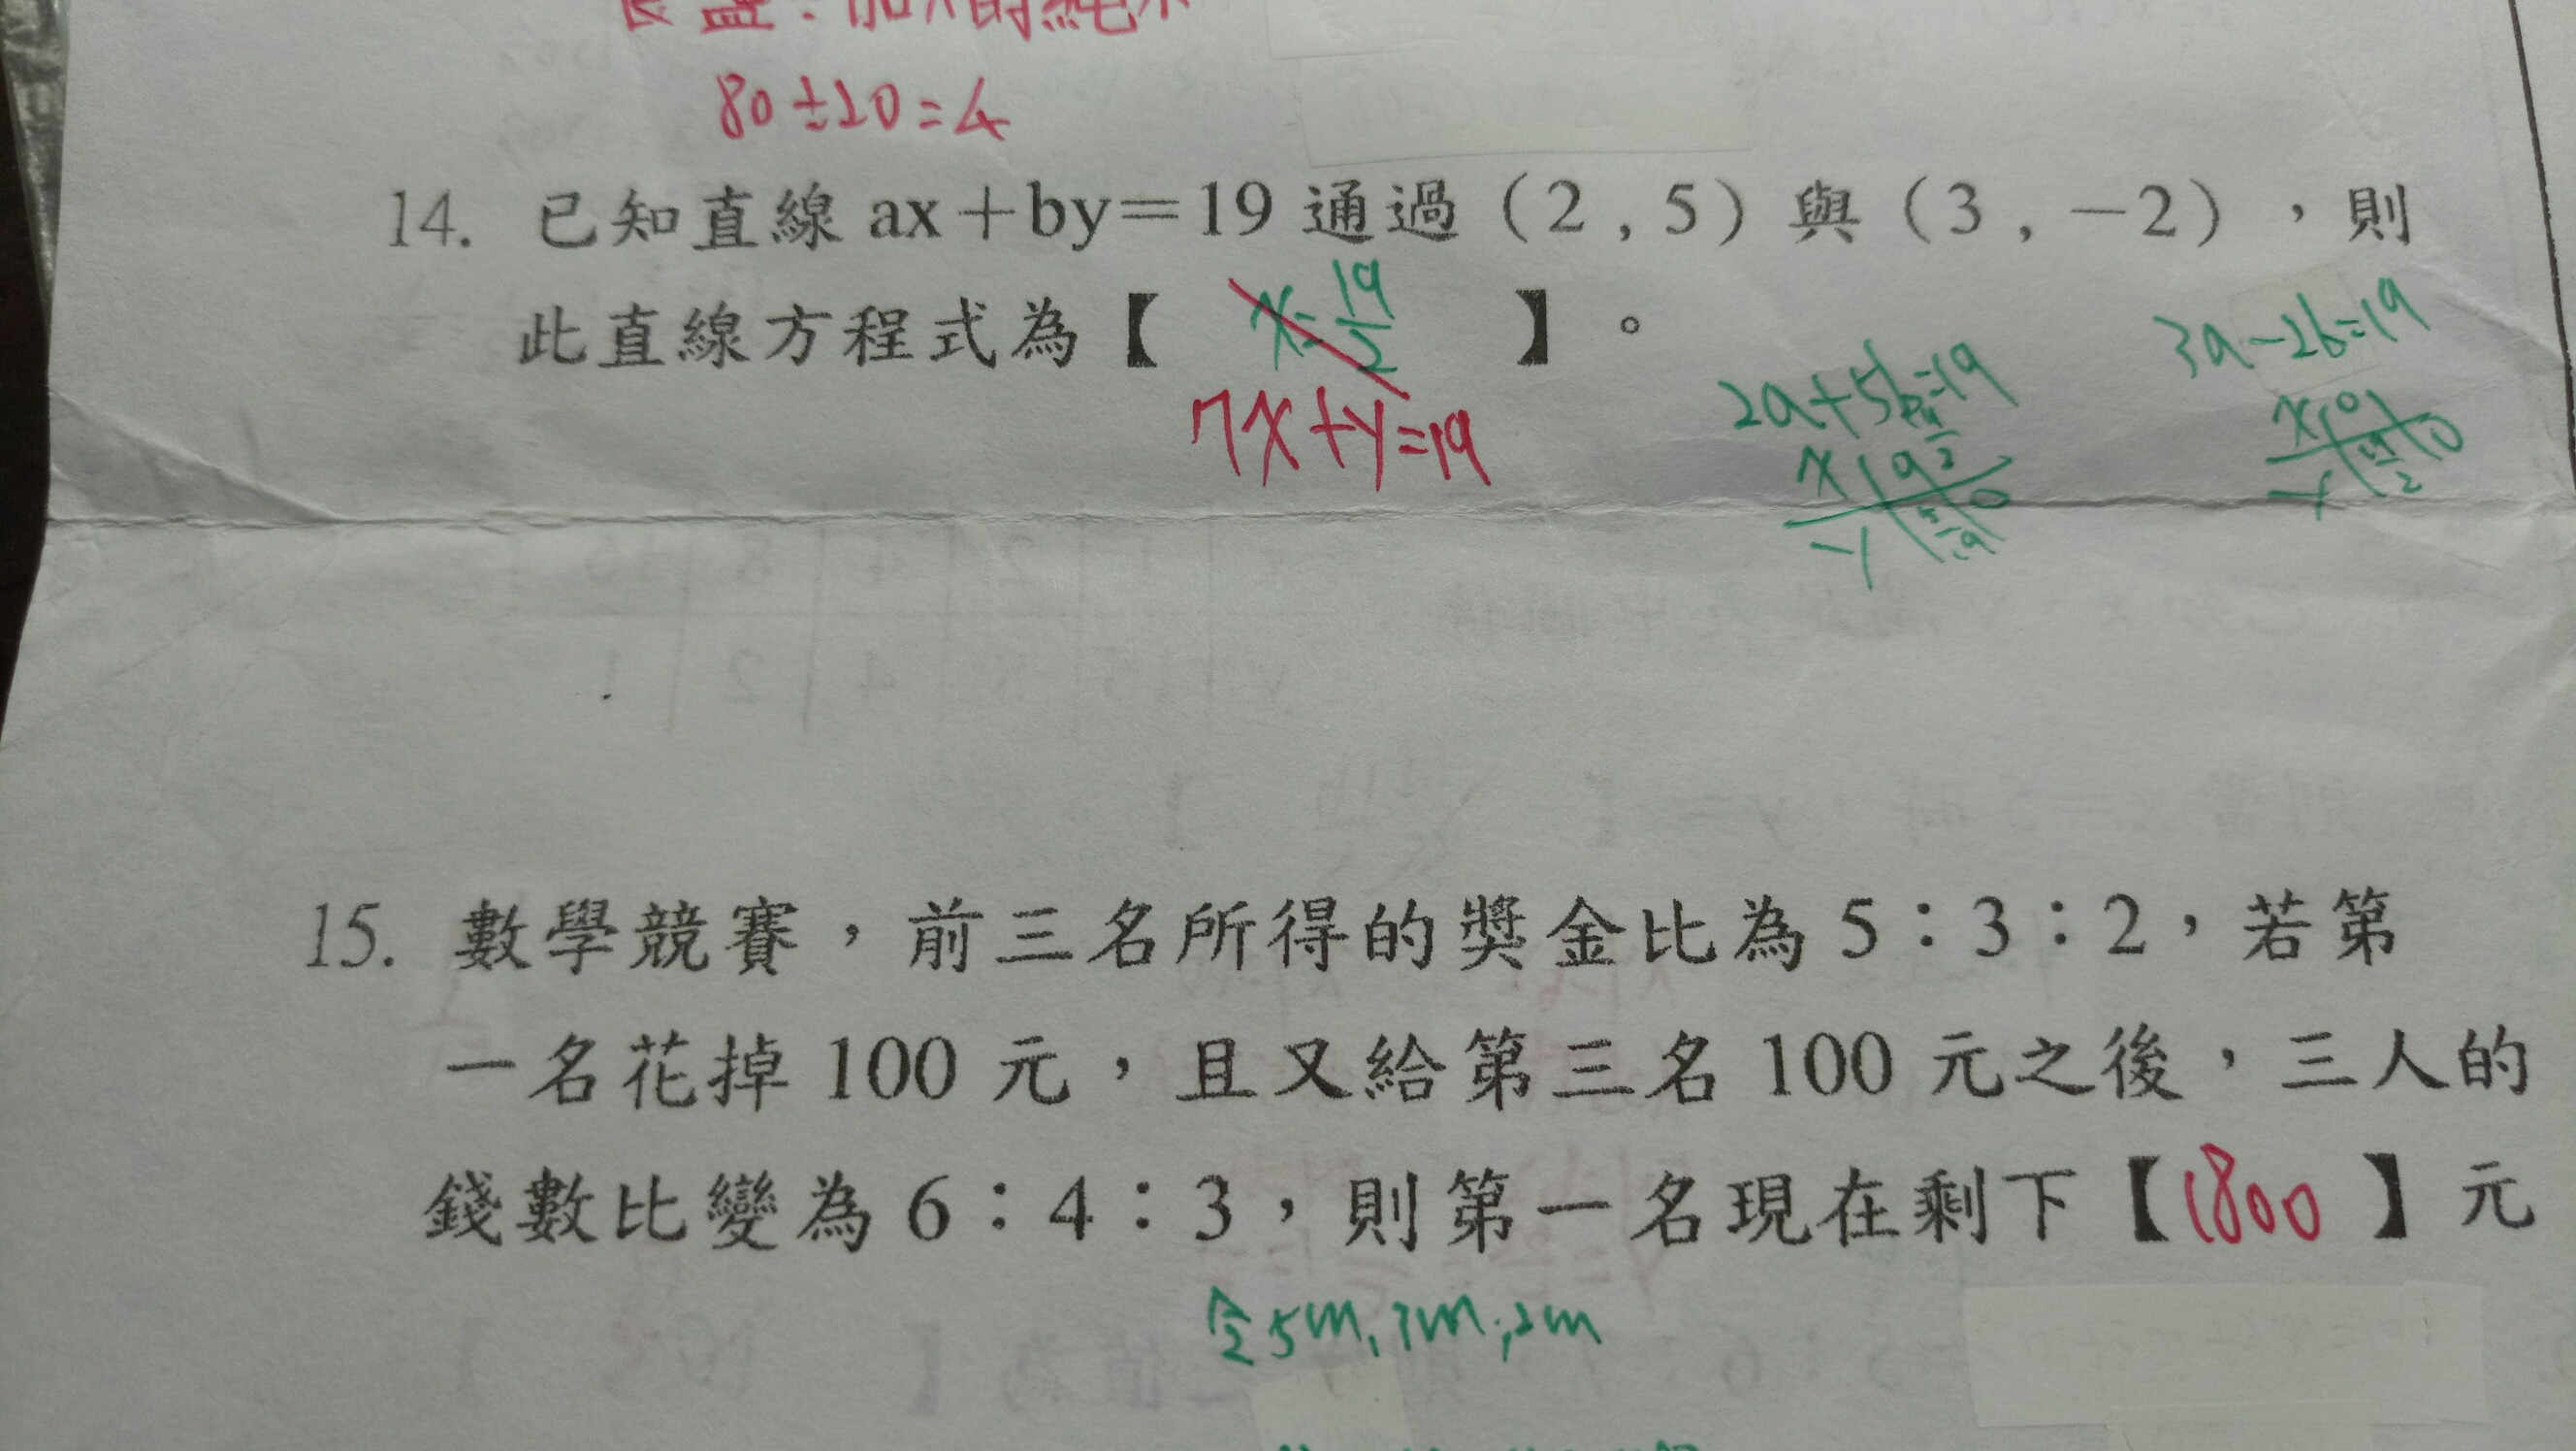 加入的純水
80÷20=4
14. 已知直線 ax+by=19 通過(2,5)與(3,-2),則
此直線方程式為【 x=19/2 】。
7x+y=19
2a+5b=19
3a-2b=19
15. 數學競賽,前三名所得的獎金比為 5:3:2,若第
一名花掉 100 元,且又給第三名 100 元之後,三人的
錢數比變為 6:4:3,則第一名現在剩下【1800】元
令5m,3m,2m